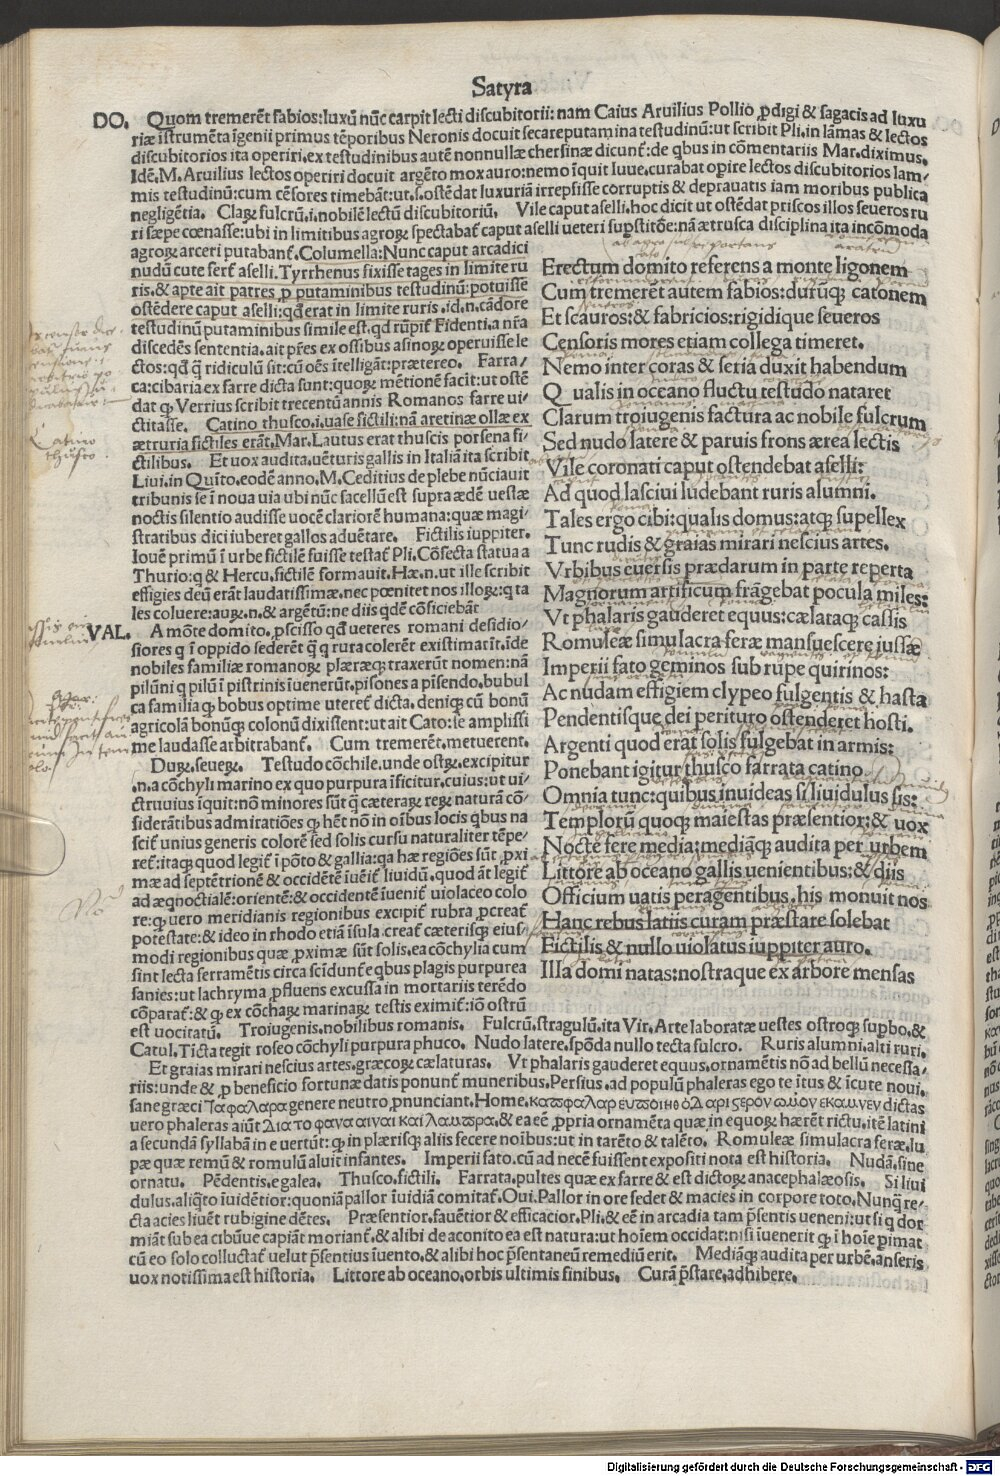 Satyra
DO. Quom tremerēt fabios:luxū nūc carpit lecti discubitorii:nam Caius Aruilius Pollio ꝓdigi & sagacis ad luxu
riæ īstrumēta īgenii primus tēporibus Neronis docuit secare putamina testudinū:ut scribit Pli.in lāmas & lectos
discubitorios ita operiri.ex testudinibus autē nonnullæ chersinæ dicunt̄:de qbus in cōmentariis Mar.diximus.
Idē.M.Aruilius lectos operiri docuit argēto mox auro:nemo īquit Iuue.curabat opire lectos discubitorios lam/
mis testudinū:cum cēsores timebāt:ut.s.ostēdat luxuriā irrepsisse corruptis & deprauatis iam moribus publica
negligētia. Claꝝ fulcrū.i.nobilē lectū discubitoriū. Vile caput aselli.hoc dicit ut ostēdat priscos illos seueros ru
ri sæpe cœnasse:ubi in limitibus agroꝝ spectabat̄ caput aselli ueteri supstitōe:nā ætrusca disciplina ita incōmoda
agroꝝ arceri putabant̄.Columella:Nunc caput arcadici
nudū cute fert̄ aselli.Tyrrhenus fixisse tages in limite ru
ris.& apte ait patres ꝓ putaminibus testudinū:potuisse
ostēdere caput aselli:qd̄ erat in limite ruris.id.n.cādore
testudinū putaminibus simile est.qd rūpit̄ Fidenti.a nr̄a
discedēs sententia.ait pr̄es ex ossibus asinoꝝ operuisse le
ctos:qd̄ q̄ ridiculū sit:cū oēs ītelligāt:prætereo. Farra/
ca:cibaria ex farre dicta sunt:quoꝝ mētionē facit:ut ostē
dat ꝙ Verrius scribit trecentū annis Romanos farre ui/
ctitasse. Catino thusco.i.uase fictili:nā aretinæ ollæ ex
ætruria fictiles erāt.Mar.Lautus erat thuscis porsena fi/
ctilibus. Et uox audita.uēturis gallis in Italiā ita scribit
Liui.in Quīto.eodē anno.M.Ceditius de plebe nūciauit
tribunis se ī noua uia ubi nūc sacellū est supra ædē uestæ
noctis silentio audisse uocē clariorē humana:quæ magi/
stratibus dici iuberet gallos aduētare. Fictilis iuppiter.
Iouē primū ī urbe fictilē fuisse testat̄ Pli.Cōfecta statua a
Thurio:q & Hercu.fictilē formauit.Hæ.n.ut ille scribit
effigies deū erāt laudatissimæ.nec pœnitet nos illoꝝ:q ta
les coluere:auꝝ.n.& argētū:ne diis qdē cōficiebāt
VAL. A mōte domito.ꝓscisso qd̄ ueteres romani desidio/
siores q ī oppido sederēt q̄ q rura colerēt existimat īt.īde
nobiles familiæ romanoꝝ plæræqꝫ traxerūt nomen:nā
pilūni q pilū ī pistrinis īuenerūt.pisones a pisendo.bubul
ca familia ꝙ bobus optime uteret̄ dicta.deniqꝫ cū bonū
agricolā bonūqꝫ colonū dixissent:ut ait Cato:īe amplissi
me laudasse arbitrabant̄. Cum tremerēt.metuerent.
Duꝝ.seueꝝ. Testudo cōchile.unde ostꝝ.excipitur
.n.a cōchyli marino ex quo purpura īficitur.cuius:ut ui/
ctruuius īquit:nō minores sūt q̄ cæteraꝝ reꝝ naturā cō/
siderātibus admiratiōes ꝙ hēt nō in oībus locis qbus na
scit̄ unius generis colorē sed solis cursu naturaliter tēpe/
ret̄:itaqꝫ quod legit̄ ī pōto & gallia:qa hæ regiōes sūt ꝓxi
mæ ad septētrionē & occidētē īuenit̄ liuidū.quod āt legit̄
ad æqnoctialē:orientē:& occidentē īuenit̄ uiolaceo colo
re:ꝙ uero meridianis regionibus excipit̄ rubra ꝓcreat̄
potestate:& ideo in rhodo etiā īsula creat̄ cæterisqꝫ eius/
modi regionibus quæ ꝓximæ sūt solis.ea cōchylia cum
sint lecta serramētis circa scīdunt̄:e qbus plagis purpurea
sanies:ut lachryma ꝓfluens excussa in mortariis terēdo
cōparat̄:& ꝙ ex cōchaꝝ marinaꝝ testis eximit̄:iō ostrū
est uocitatū. Troiugenis.nobilibus romanis. Fulcrū.stragulū.ita Vir.Arte laboratæ uestes ostroqꝫ supbo.&
Catul.Ticta tegit roseo cōchyli purpura phuco. Nudo latere.spōda nullo tecta fulcro. Ruris alumni.alti ruri.
Et graias mirari nescius artes.græcoꝝ cælaturas. Vt phalaris gauderet equus.ornamētis nō ad bellū necessa/
riis:unde & ꝓ beneficio fortunæ datis ponunt̄ muneribus.Persius.ad populū phaleras ego te ītus & īcute noui.
uero phaleras aiūt Δια το φανα αιναι και λαμπρα.& ea eē ꝓpria ornamēta quæ in equoꝝ hærēt rictu.itē latini
a secundā syllabā in e uertūt:ꝙ in plærisqꝫ aliis fecere noībus:ut in tarēto & talēto. Romuleæ simulacra feræ.lu
pæ quæ remū & romulū aluit infantes. Imperii fato.cū ad necē fuissent expositi nota est historia. Nudā.sine
ornatu. Pēdentis.e galea. Thusco.fictili. Farrata.pultes quæ ex farre & est dictoꝝ anacephalæosis. Si liui
dulus.aliqto īuidētior:quoniā pallor īuidiā comitat̄.Oui.Pallor in ore sedet & macies in corpore toto.Nunq̄ re/
cta acies liuēt rubigine dētes. Præsentior.fauētior & efficacior.Pli.& eē in arcadia tam p̄sentis ueneni:ut si q dor
miāt sub ea cibūue capiāt moriant̄.& alibi de aconito ea est natura:ut hoīem occidat:nisi īuenerit ꝙ ī hoīe pimat
cū eo solo colluctat̄ uelut p̄sentius īuento.& alibi hoc p̄sentaneū remediū erit. Mediāqꝫ audita per urbē.anseris
uox notissima est historia. Littore ab oceano.orbis ultimis finibus. Curā p̄stare.adhibere.
Erectum domito referens a monte ligonem
Cum tremerēt autem fabios:durūqꝫ catonem
Et scauros:& fabricios:rigidique seueros
Censoris mores etiam collega timeret.
Nemo inter coras & seria duxit habendum
Qualis in oceano fluctu testudo nataret
Clarum troiugenis factura ac nobile fulcrum
Sed nudo latere & paruis frons ærea lectis
Vile coronati caput ostendebat aselli:
Ad quod lasciui ludebant ruris alumni.
Tales ergo cibi:qualis domus:atqꝫ supellex
Tunc rudis & graias mirari nescius artes.
Vrbibus euersis prædarum in parte reperta
Magnorum artificum frāgebat pocula miles:
Vt phalaris gauderet equus:cælataqꝫ cassis
Romuleæ simulacra feræ mansuescere iussæ
Imperii fato geminos sub rupe quirinos:
Ac nudam effigiem clypeo fulgentis & hasta
Pendentisque dei perituro ostenderet hosti.
Argenti quod erat solis fulgebat in armis:
Ponebant igitur thusco farrata catino
Omnia tunc:quibus inuideas si liuidulus sis:
Templorū quoqꝫ maiestas præsentior:& uox
Nocte fere media:mediāqꝫ audita per urbem
Littore ab oceano gallis uenientibus:& diis
Officium uatis peragentibus.his monuit nos
Hanc rebus latiis curam præstare solebat
Fictilis & nullo uiolatus iuppiter auro.
Illa domi natas:nostraque ex arbore mensas
Digitalisierung gefördert durch die Deutsche Forschungsgemeinschaft - DFG